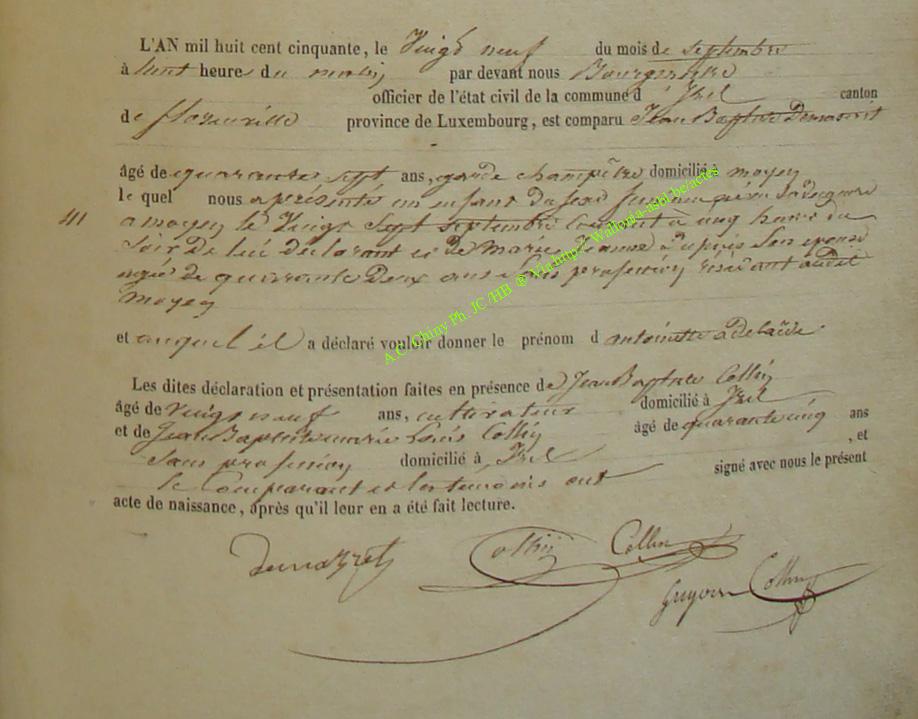 L'AN mil huit cent cinquante, le Vingt neuf du mois de septembre
à huit heures du matin par devant nous Bourgmestre
officier de l'état civil de la commune d' Izel canton
de florenville province de Luxembourg, est comparu Jean Baptiste
âgé de quarante sept ans, garde champêtre domicilié à moyen
le quel nous a présenté un enfant du sexe
41 a moyen le Vingt Sept septembre courant à cinq heures du
Soir De lui déclarant et de marie Jeanne Dupuis Son epouse
agée de quarante Deux ans Sans profession résidant audit
moyen
et auquel il a déclaré vouloir donner le prénom d' antoinette adelaïde
Les dites déclaration et présentation faites en présence de Jean Baptiste Collin
âgé de vingt neuf ans, cultivateur domicilié à Izel
et de Jean Baptiste marie Louis Collin âgé de quarante cinq ans
Sans profession domicilié à Izel , et
le Comparant et les temoins ont signé avec nous le présent
acte de naissance, après qu'il leur en a été fait lecture.
Collin Collin
Guyon Collin